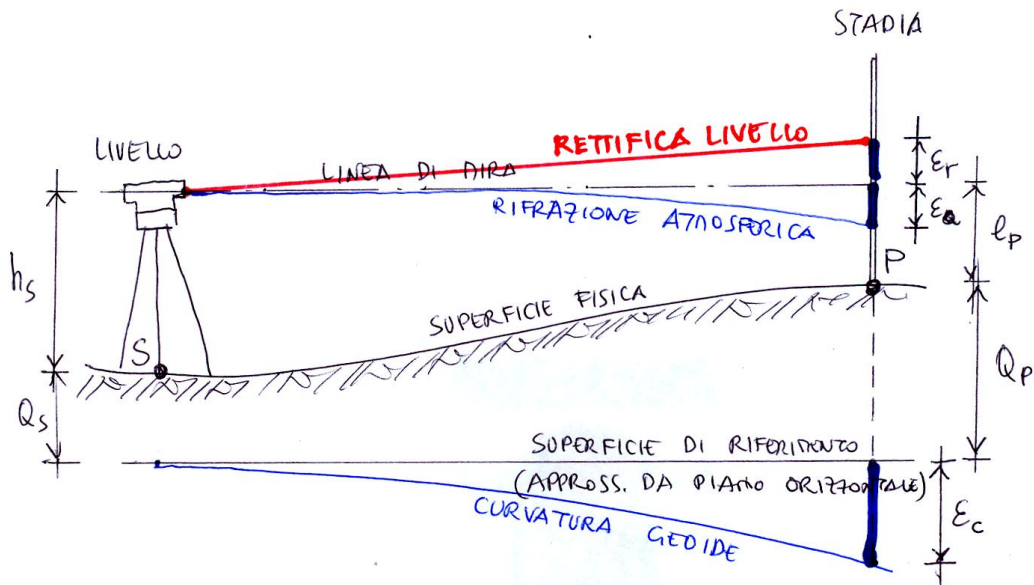 STADIA
RETTIFICA LIVELLO
LIVELLO
LINEA DI MIRA
εr
RIFRAZIONE ATMOSFERICA
εa
lP
P
hS
SUPERFICIE FISICA
S
QS
QP
SUPERFICIE DI RIFERIMENTO
(APPROSS. DA PIANO ORIZZONTALE)
CURVATURA GEOIDE
εc